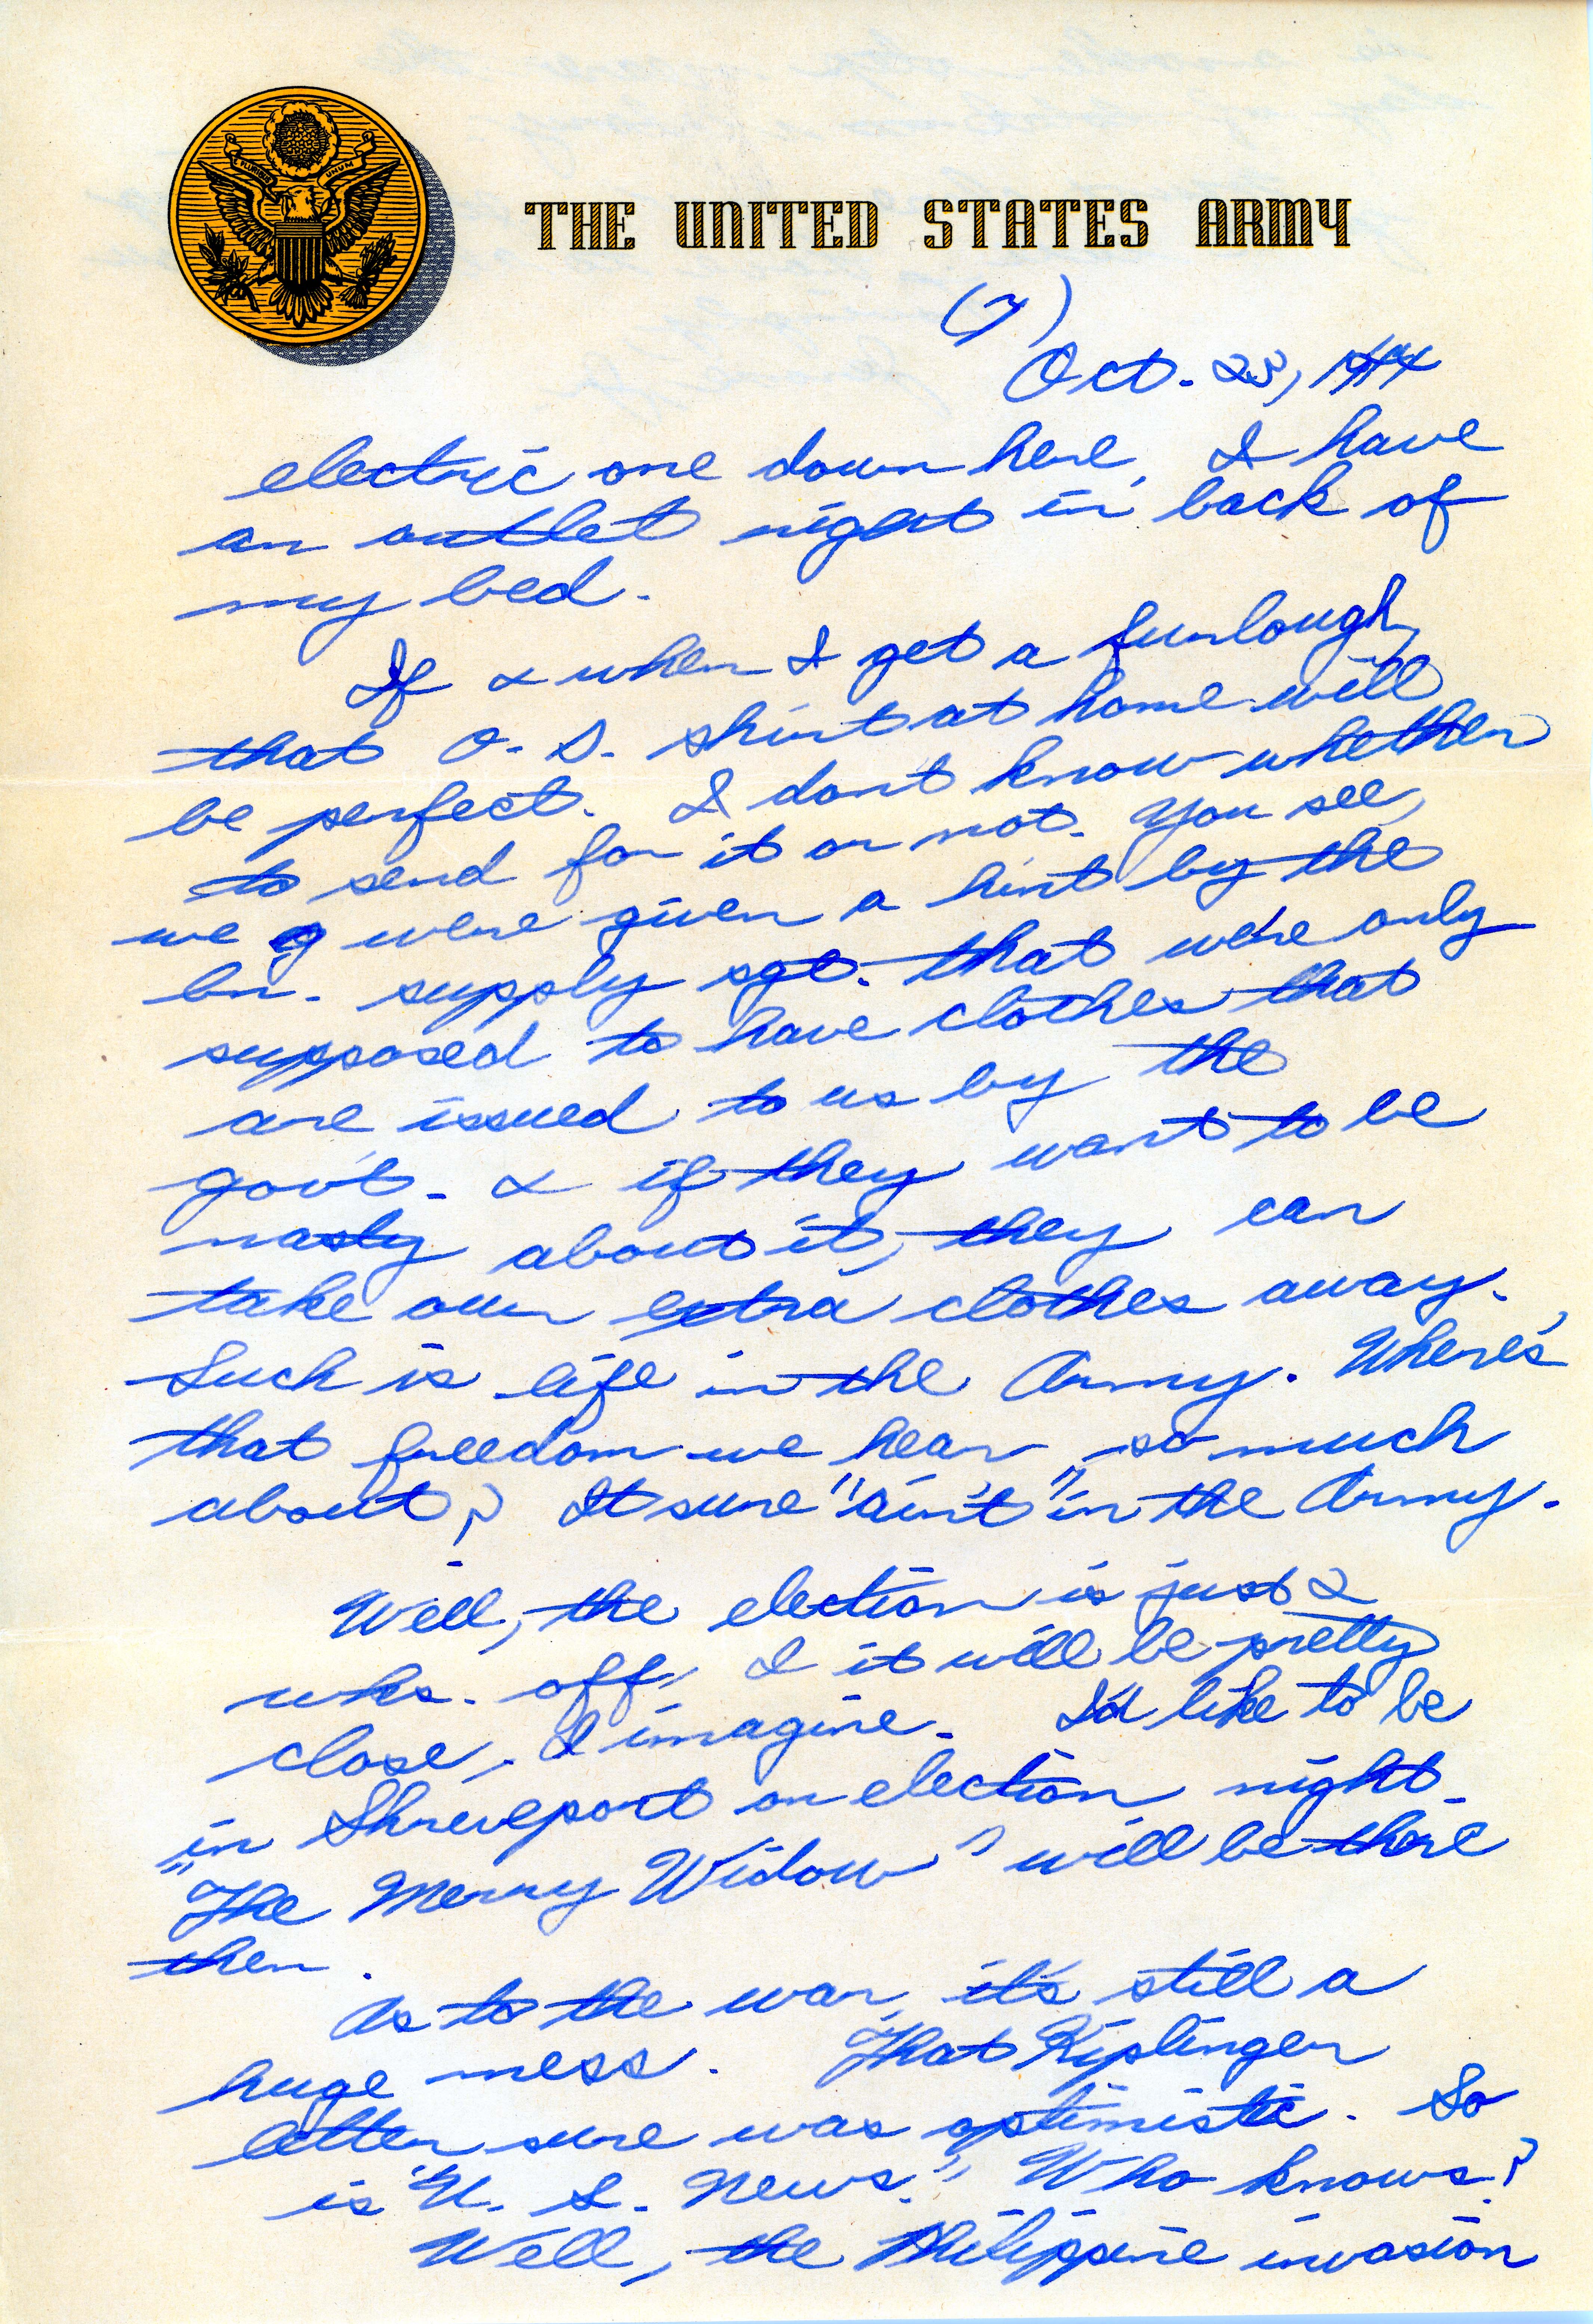 E PLURIBUS UNUM
THE UNITED STATES ARMY
(7)
Oct. 23, 1944
electric one down here. I have
an outlet right in back of
my bed.
If & when I get a furlough,
that O. D. shirt at home will
be perfect. I don't know whether
to send for it or not. You see,
we were given a hint by the
bn. supply sgt. that we're only
supposed to have clothes that
are issued to us by the
gov't. & if they want to be
nasty about it, they can
take our extra clothes away.
Such is life in the Army. Where's
that freedom we hear so much
about? It sure "ain't" in the Army.
Well, the election is just 2
wks. off, & it will be pretty
close, I imagine. I'd like to be
in Shreveport on election night.
"The Merry Widow" will be there
then.
As to the war, it's still a
huge mess. That Kiplinger
letter sure was optimistic. So
is "U. S. News." Who knows?
Well, the Philippine invasion